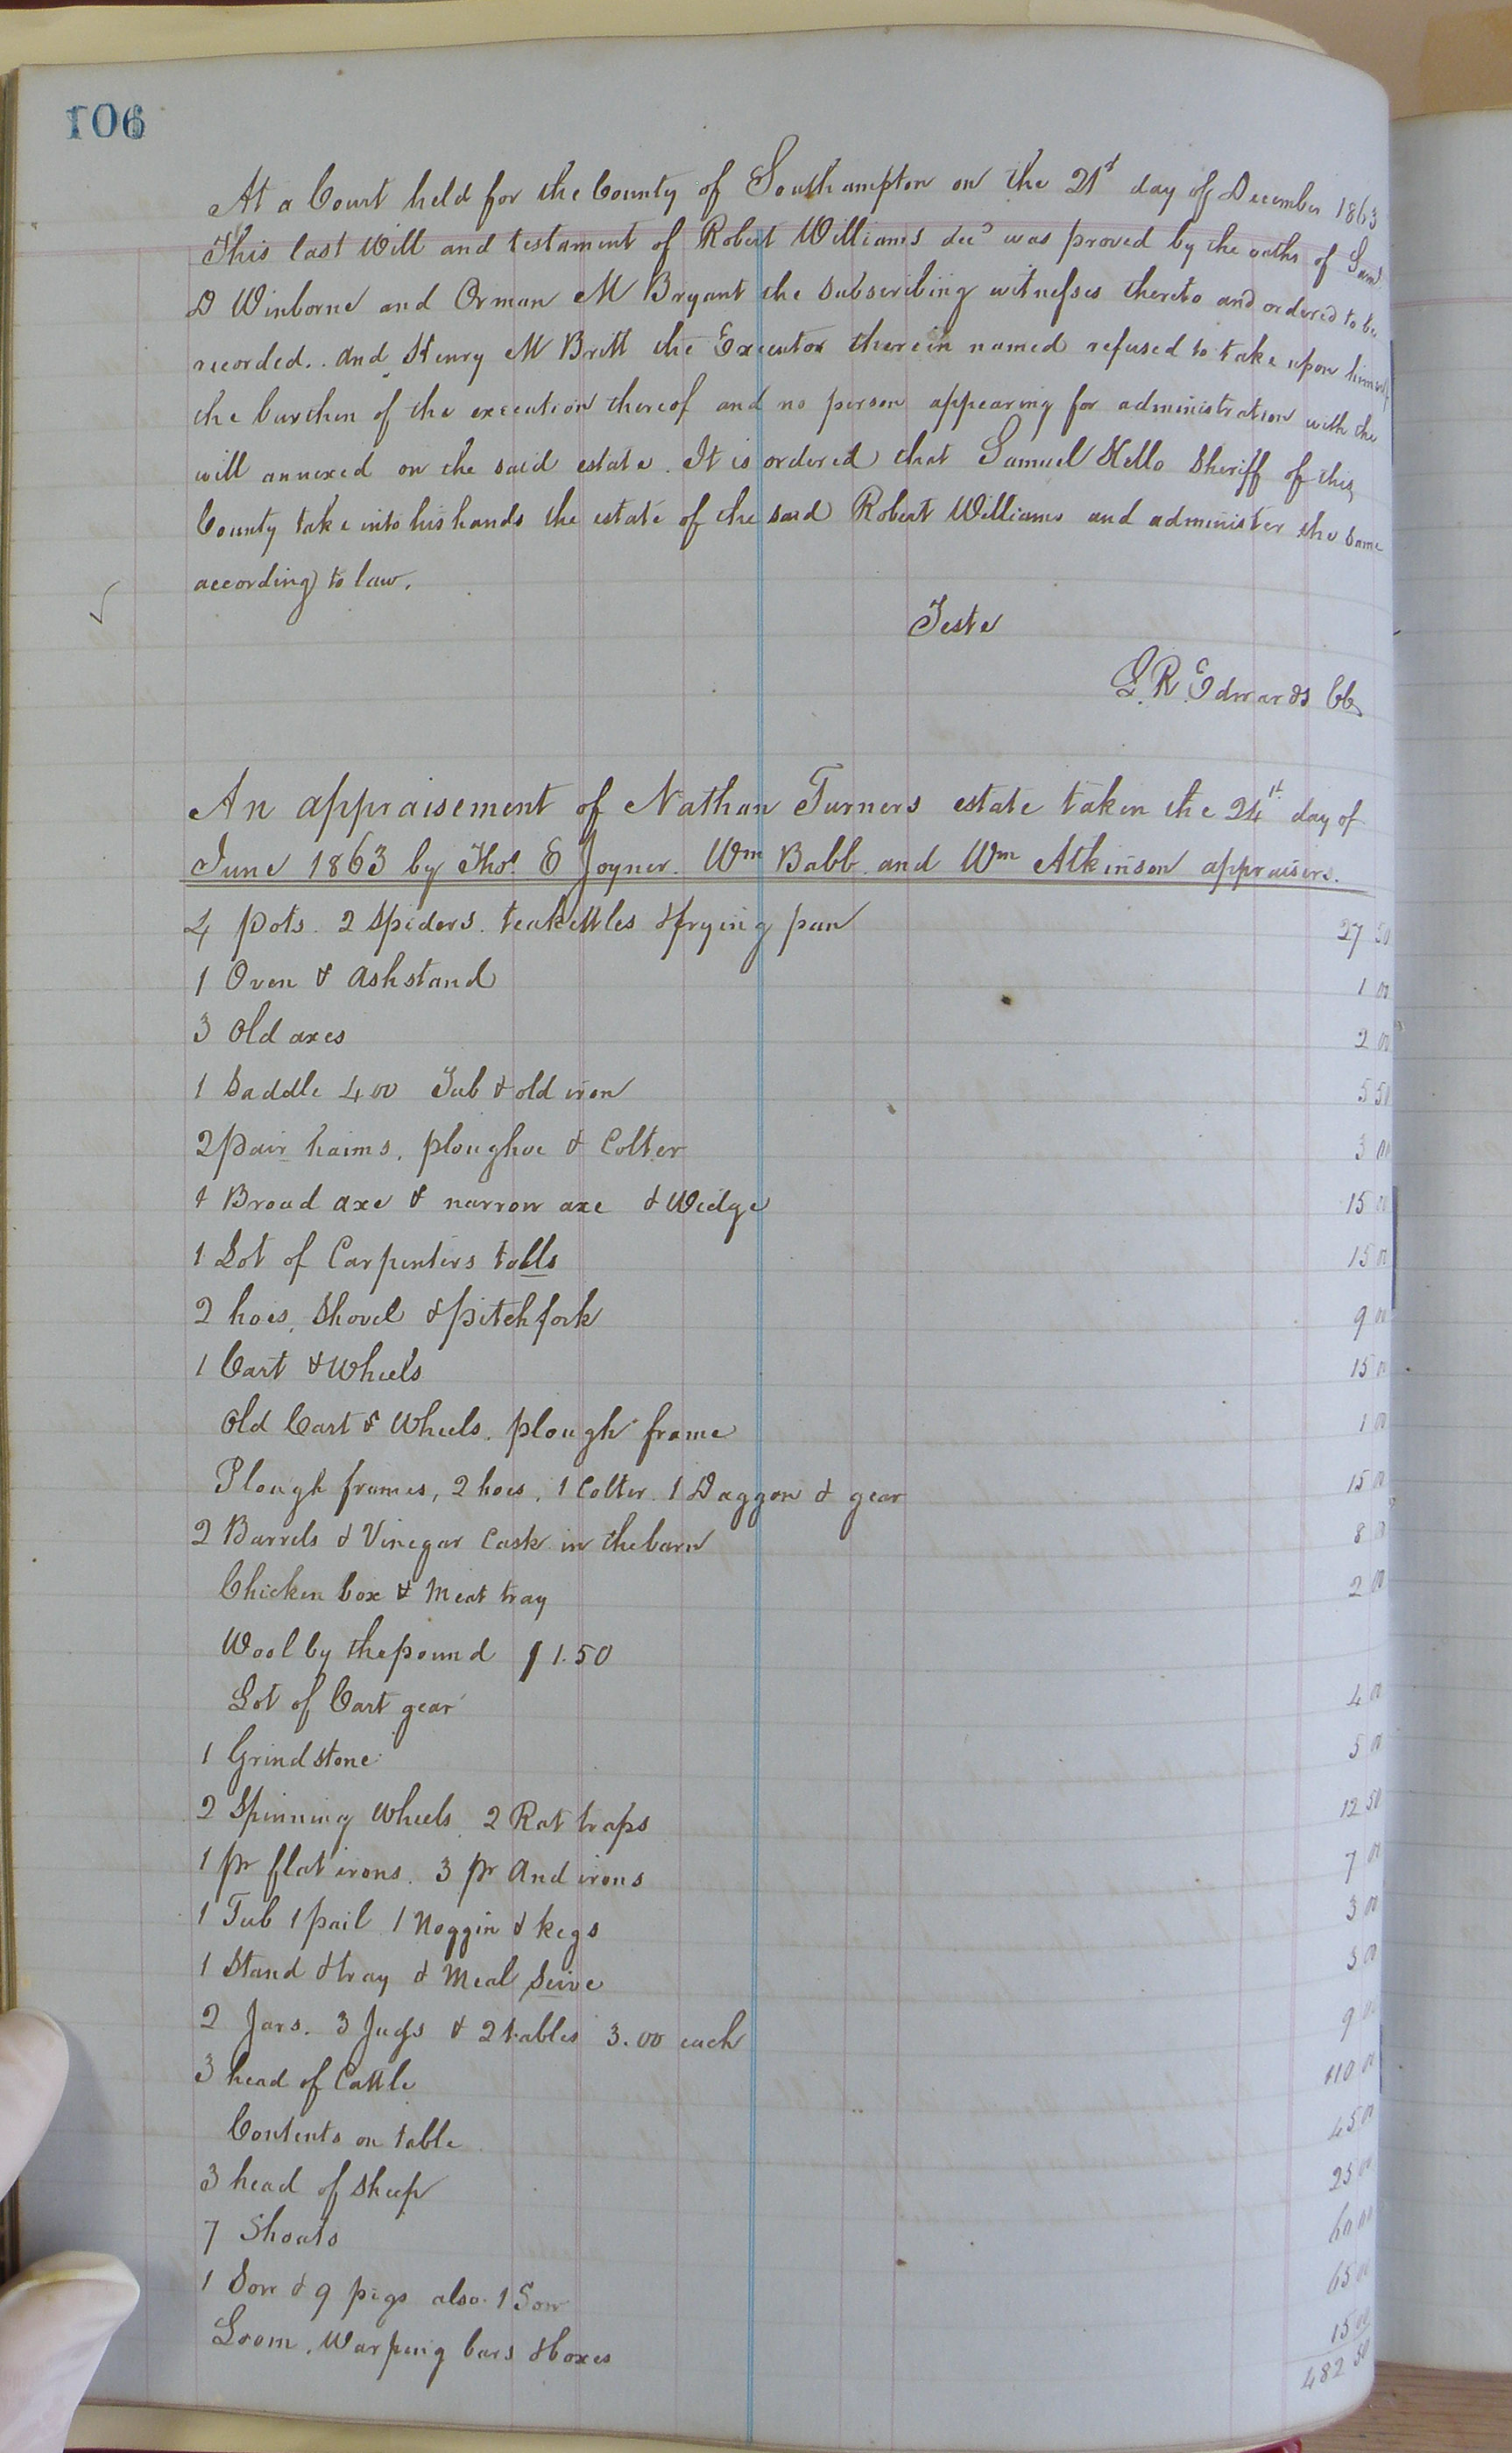 106
At a Court held for the County of Southampton on the 21st day of December 1863
This last Will and testament of Robert Williams decd was proved by the oaths of Saml
D Winborne and Orman M Bryant the subscribing witnesses thereto and ordered to be
recorded.. And Henry M Britt the Executor therein named refused to take upon himself
the burthen of the execution thereof and no person appearing for administration with the
will annexed on the said estate. It is ordered that Samuel Kello Sheriff of this
County take into his hands the estate of the said Robert Williams and administer the same
according to law.
Teste
L. R. Edwards CC
An appraisement of Nathan Turners estate taken the 24th day of
June 1863 by Thos E Joyner. Wm Babb and Wm Atkinson appraisers.
4 pots. 2 Spiders. teakettles & frying pan 27 50
1 Oven & Ashstand 1 00
3 Old axes 2 00
1 Saddle 4 00 Tub & old iron 5 50
2 pair haims, ploughoe & Colter 3 00
1 Broad axe & narrow axe & Wedge 15 00
1 Lot of Carpenters tolls 15 00
2 hoes, Shovel & pitchfork 9 00
1 Cart & Wheels 15 00
Old Cart & Wheels. plough frame 1 00
Plough frames, 2 hoes, 1 Colter. 1 Daggon & gear 15 00
2 Barrels & Vinegar Cask in the barn 8 00
Chicken box & Meat tray 2 00
Wool by the pound $1.50
Lot of Cart gear 4 00
1 Grindstone 5 00
2 Spinning Wheels 2 Rat traps 12 50
1 pr flat irons. 3 pr And irons 7 00
1 Tub 1 pail 1 Noggin & kegs 3 00
1 Stand & tray & Meal Seive 3 00
2 Jars. 3 Jugs & 2 tables 3.00 each 9 00
3 head of Cattle 110 00
Contents on table 45 00
3 head of Sheep 25 00
7 Shoats 60 00
1 Sow & 9 pigs also 1 Sow 65 00
Loom, Warping bars & boxes 15 00
482 50